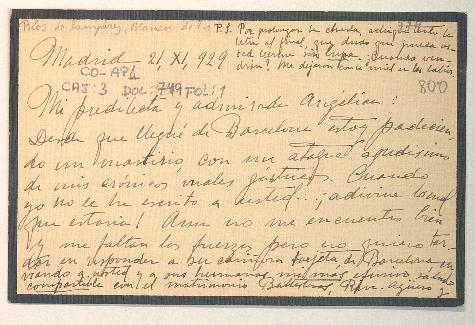 Pilos de Lampérez, Blanca de l
P.S. Por prolongar la charla, achiqué tanto la
letra al final, que dudo que pueda us-
ted leerme sin lupa. ¿Cuándo ven-
drán? Me dejaron con la miel en los labios.
Madrid 21, XI, 929
CO-APA
CAJ: 3 DOC: 749 FOL: 1
800
Mi predilecta y admirada Angélica:
Desde que llegué de Barcelona estoy padecien-
do un martirio con un ataque agudísimo
de mis crónicos males gástricos. Cuando
yo no le he escrito a usted... ¡adivine lo mal
que estaría! Aun no me encuentro bien
y me faltan las fuerzas, pero no quiero tar-
dar en responder a su cariñosa tarjeta de Barcelona, en-
viando a usted y a sus hermanas mi más efusivo saludo
compartible con el matrimonio Ballesteros,